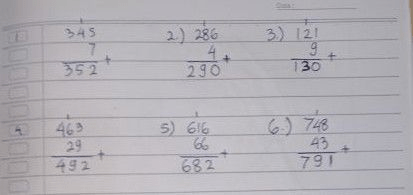 Date :
1 1 1
1 345 2.) 286 3.) 121
7 4 9
352 + 290 + 130 +
1 1 1
4 463 5) 616 6.) 748
29 66 43
492 + 682 + 791 +